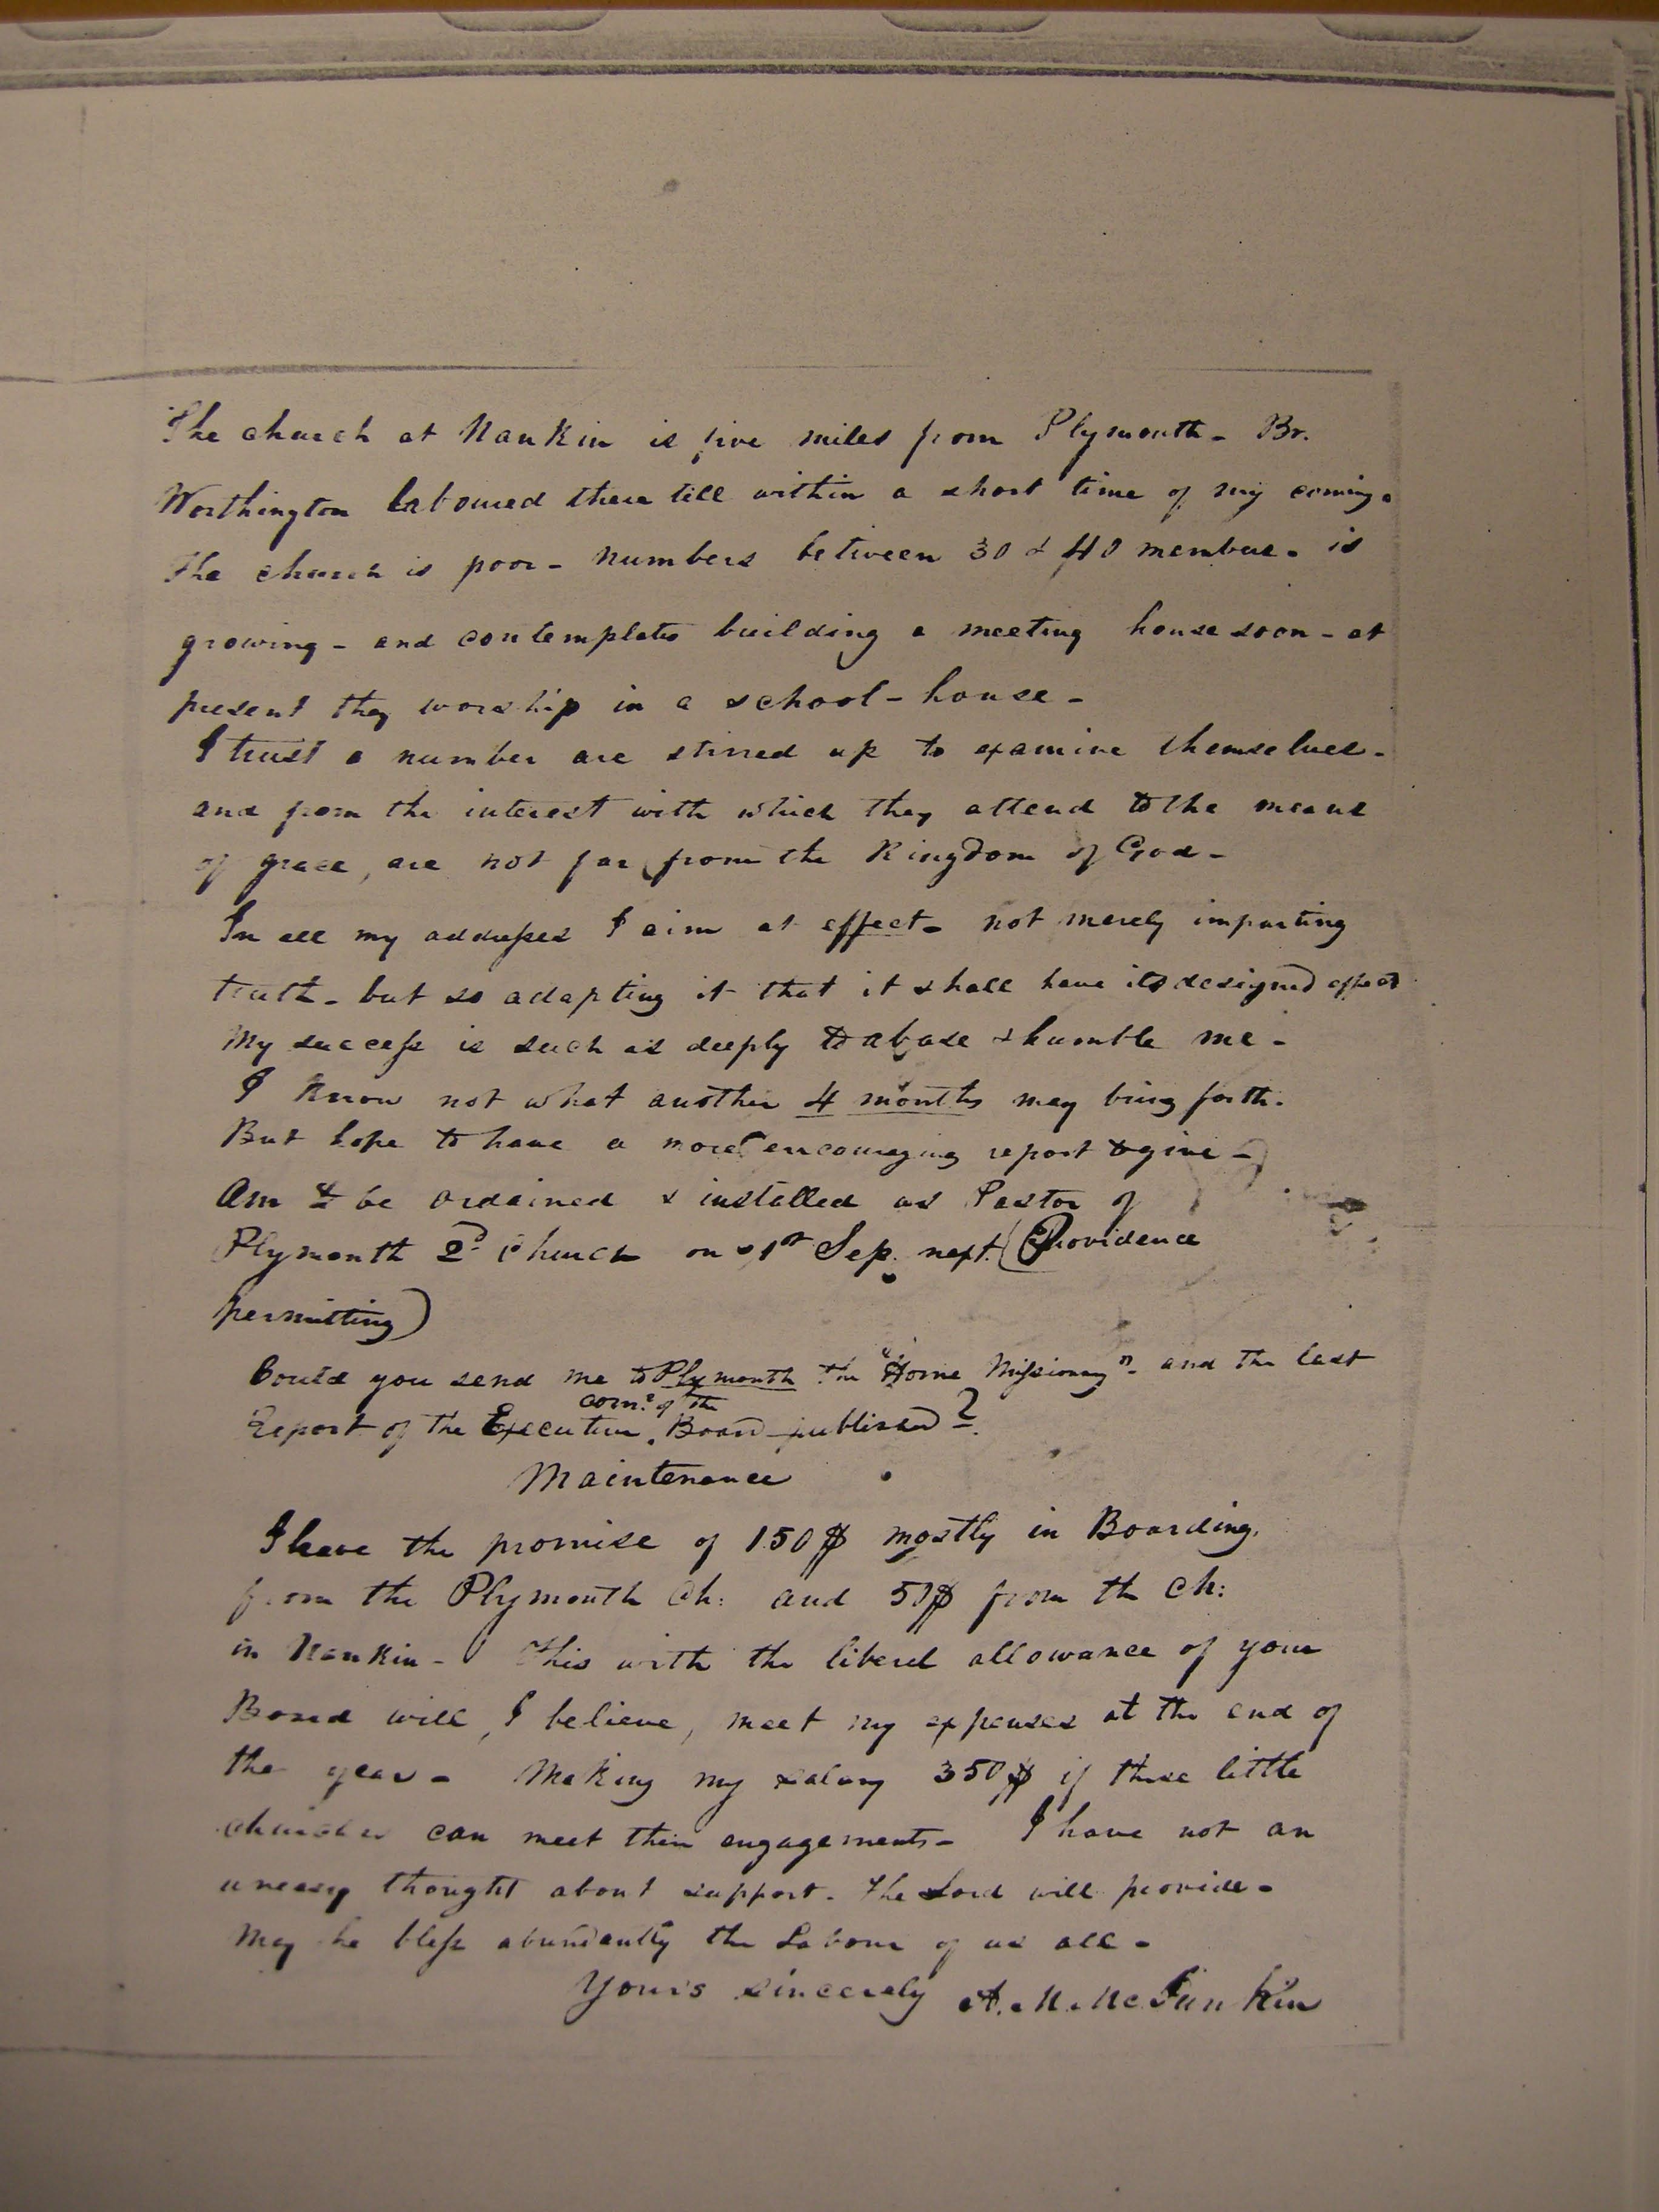 The church at Nankin is five miles from Plymouth - Br.
Worthington laboured there till within a short time of my coming.
The church is poor - numbers between 30 & 40 members. is
growing - and contemplates building a meeting house soon - at
present they worship in a school-house -
I trust a number are stirred up to examine themselves -
and from the interest with which they attend to the means
of grace, are not far from the Kingdom of God -
In all my addresses I aim at effect - not merely imparting
truth - but so adapting it that it shall have its designed effect
My success is such as deeply to abase & humble me -
I know not what another 4 months may bring forth.
But hope to have a more encouraging report to give -
Am to be ordained & installed as Pastor of
Plymouth 2d Church on 1st Sep. next (Providence
permitting)
Could you send me to Plymouth the "Home Missionary" - and the last
com. of the
Report of the Executive Board published?
Maintenance
I have the promise of 150$ mostly in Boarding,
from the Plymouth Ch: and 50$ from th Ch:
in Nankin - This with the liberal allowance of your
Board will, I believe, meet my expenses at the end of
the year - Making my salary 350$ if these little
churches can meet their engagements - I have not an
uneasy thought about support. The Lord will provide -
May he bless abundantly the Labour of us all -
Yours sincerely A. M. McJunkin